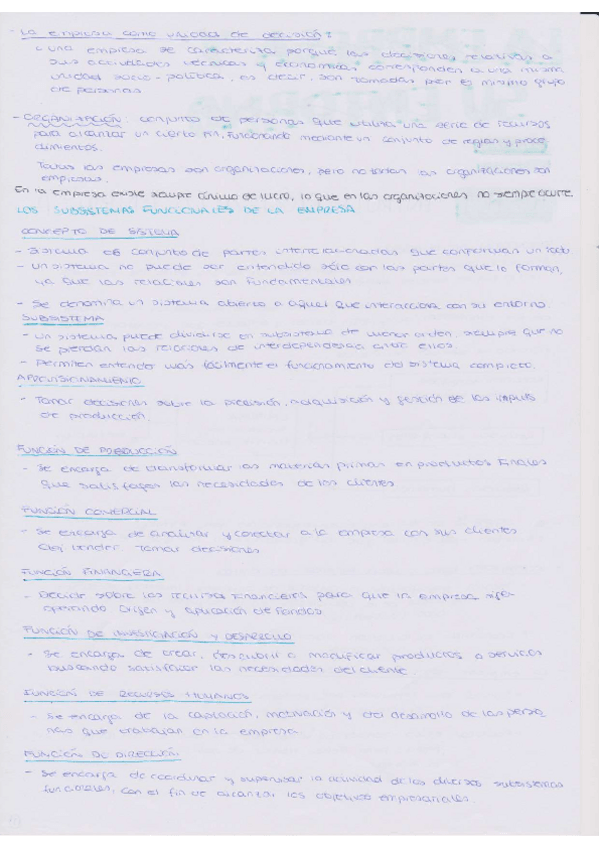 - LA EMPRESA COMO UNIDAD DE DECISIÓN:
una empresa se caracteriza porque las decisiones relativas a
sus actividades técnicas y económicas corresponden a una misma
unidad socio-política, es decir, son tomadas por el mismo grupo
de personas
- ORGANIZACIÓN: conjunto de personas que utiliza una serie de recursos
para alcanzar un cierto fin, funcionando mediante un conjunto de reglas y proce
dimientos.
Todas las empresas son organizaciones, pero no todas las organizaciones son
empresas.
En la empresa existe siempre ánimo de lucro, lo que en las organizaciones no siempre ocurre.
LOS SUBSISTEMAS FUNCIONALES DE LA EMPRESA
CONCEPTO DE SISTEMA
- Sistema es conjunto de partes interrelacionadas que conforman un todo
- Un sistema no puede ser entendido sólo con las partes que lo forman,
ya que las relaciones son fundamentales
- Se denomina un sistema abierto a aquel que interacciona con su entorno
SUBSISTEMA
- Un sistema puede dividirse en subsistema de menor orden, siempre que no
se pierdan las relaciones de interdependencia entre ellos.
- Permiten entender más fácilmente el funcionamiento del sistema completo.
APROVISIONAMIENTO
- Tomar decisiones sobre la previsión, adquisición y gestión de los inputs
de producción.
FUNCIÓN DE PRODUCCIÓN
- Se encarga de transformar las materias primas en productos finales
que satisfagan las necesidades de los clientes
FUNCIÓN COMERCIAL
- Se encarga de analizar y conectar a la empresa con sus clientes
vender. Tomar decisiones
FUNCIÓN FINANCIERA
- Decidir sobre los recursos financieros para que la empresa siga
operando. Origen y aplicación de fondos
FUNCIÓN DE INVESTIGACIÓN Y DESARROLLO
- Se encarga de crear, descubrir o modificar productos o servicios
buscando satisfacer las necesidades del cliente
FUNCIÓN DE RECURSOS HUMANOS
- Se encarga de la captación, motivación y del desarrollo de las perso
nas que trabajan en la empresa
FUNCIÓN DE DIRECCIÓN
- Se encarga de coordinar y supervisar la actividad de los diversos subsistemas
funcionales, con el fin de alcanzar los objetivos empresariales.